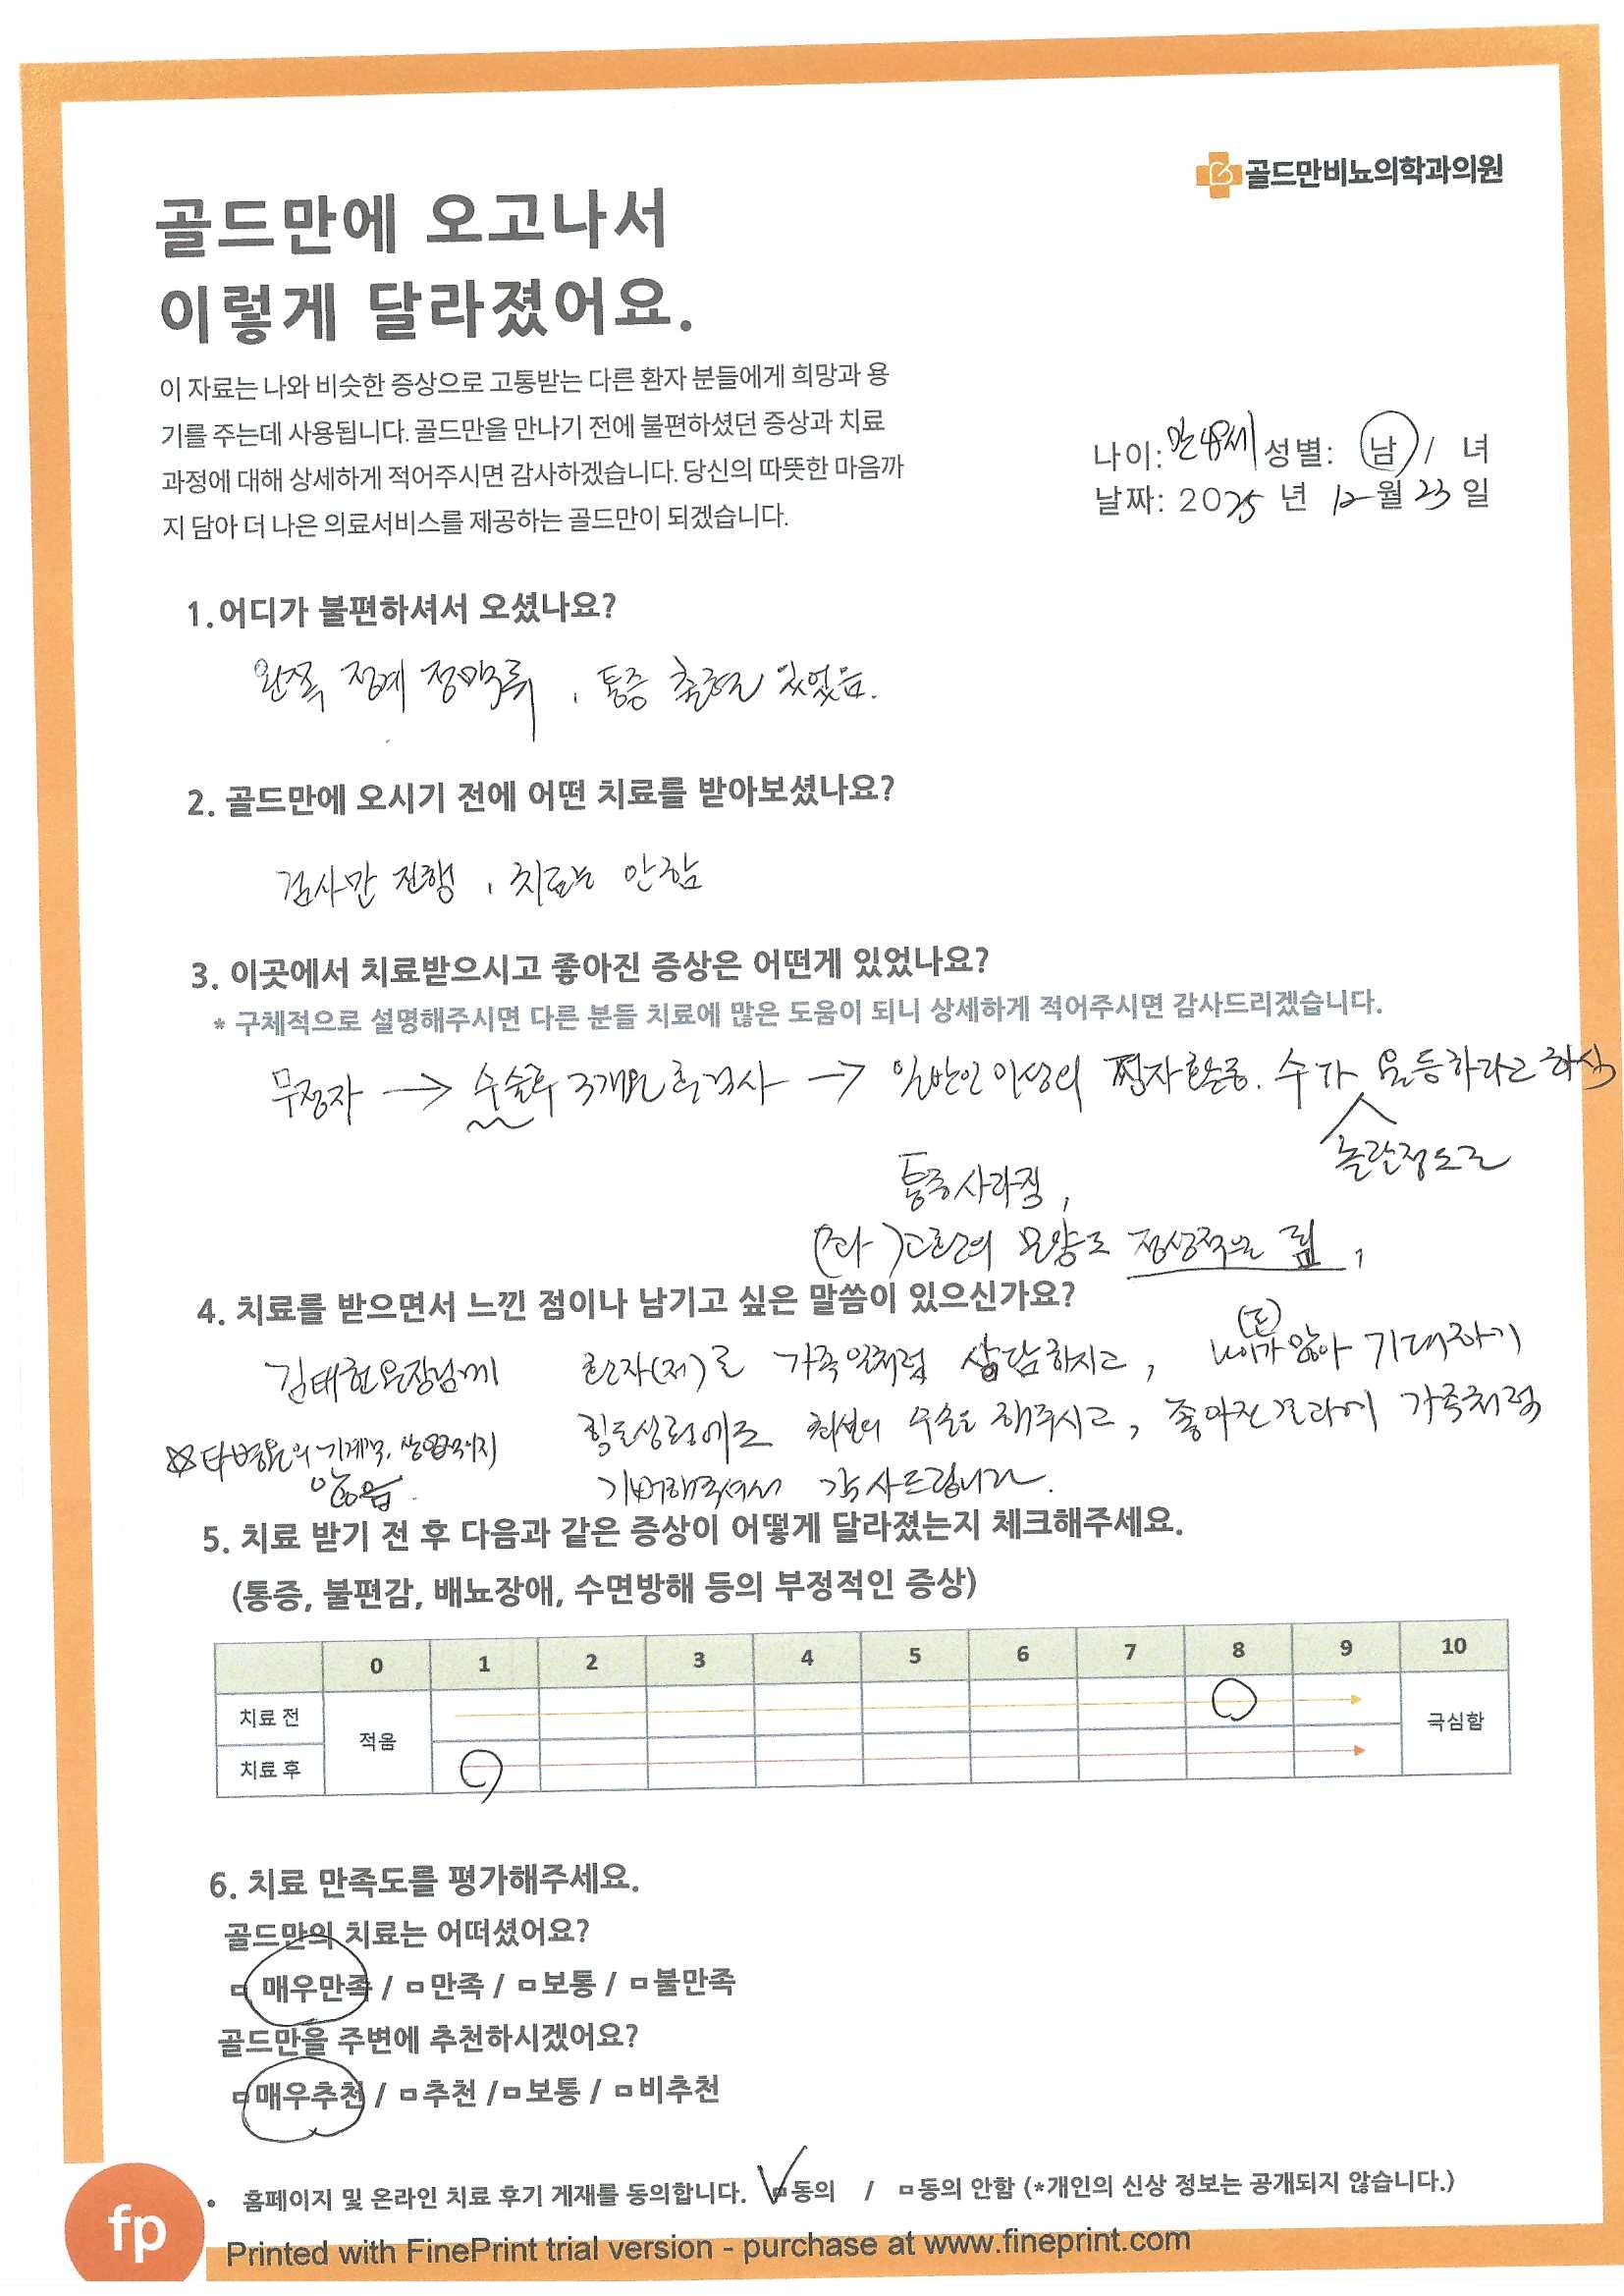 골드만비뇨의학과의원
골드만에 오고나서
이렇게 달라졌어요.
이 자료는 나와 비슷한 증상으로 고통받는 다른 환자 분들에게 희망과 용
기를 주는데 사용됩니다. 골드만을 만나기 전에 불편하셨던 증상과 치료
과정에 대해 상세하게 적어주시면 감사하겠습니다. 당신의 따뜻한 마음까
지 담아 더 나은 의료서비스를 제공하는 골드만이 되겠습니다.
나이: 만 48세 성별: 남 / 녀
날짜: 2025 년 12 월 23 일
1. 어디가 불편하셔서 오셨나요?
왼쪽 정계 정맥류, 통증 있었음.
2. 골드만에 오시기 전에 어떤 치료를 받아보셨나요?
검사만 진행, 치료는 안함
3. 이곳에서 치료받으시고 좋아진 증상은 어떤게 있었나요?
* 구체적으로 설명해주시면 다른 분들 치료에 많은 도움이 되니 상세하게 적어주시면 감사드리겠습니다.
무정자 → 수술후 3개월 후 검사 → 일반인 이상의 정자 수가 월등하라고 하심
놀랄정도로
통증사라짐,
(좌)고환의 모양도 정상적으로 됨,
4. 치료를 받으면서 느낀 점이나 남기고 싶은 말씀이 있으신가요?
김태헌원장님께 환자(저)를 가족일처럼 상담하시고, 나이가 많아 기대하기
힘든상황에도 최선의 수술을 해주시고, 좋아진결과에 가족처럼
☆타병원의 기계적, 않음.
기뻐해주셔서 감사드립니다.
5. 치료 받기 전 후 다음과 같은 증상이 어떻게 달라졌는지 체크해주세요.
(통증, 불편감, 배뇨장애, 수면방해 등의 부정적인 증상)
0 1 2 3 4 5 6 7 8 9 10
치료 전
적음
극심함
치료 후
6. 치료 만족도를 평가해주세요.
골드만의 치료는 어떠셨어요?
□ 매우만족 / □ 만족 / □ 보통 / □ 불만족
골드만을 주변에 추천하시겠어요?
□ 매우추천 / □ 추천 / □ 보통 / □ 비추천
• 홈페이지 및 온라인 치료 후기 게재를 동의합니다. □동의 / □동의 안함 (*개인의 신상 정보는 공개되지 않습니다.)
fp
Printed with FinePrint trial version - purchase at www.fineprint.com